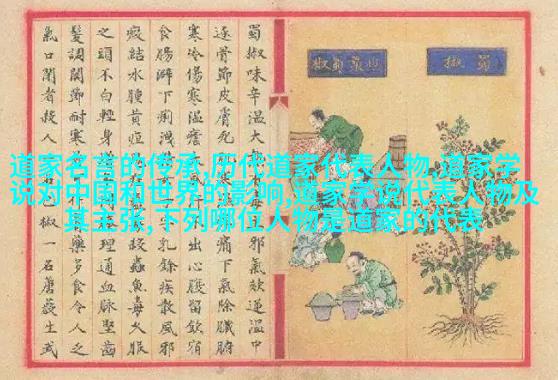 蜀椒
蜀椒味辛溫大 邪氣欬逆溫中
逐骨節皮膚死 痛下氣除臟腑
寒冷傷寒溫瘧 出心腹留飲宿
食腸澼下痢洩 乳餘疾散風邪
瘕結水腫黃疸 殺蟲魚毒久服
之頭不白輕身 理通血脉堅齒
髮調關節耐寒 藥多食令人乏
氣口閉者殺人 椒一名 生武
道家名著的传承,历代道家代表人物,道家学
说对中国和世界的影响,道家学说代表人物及
其主张,下列哪位人物是道家的代表